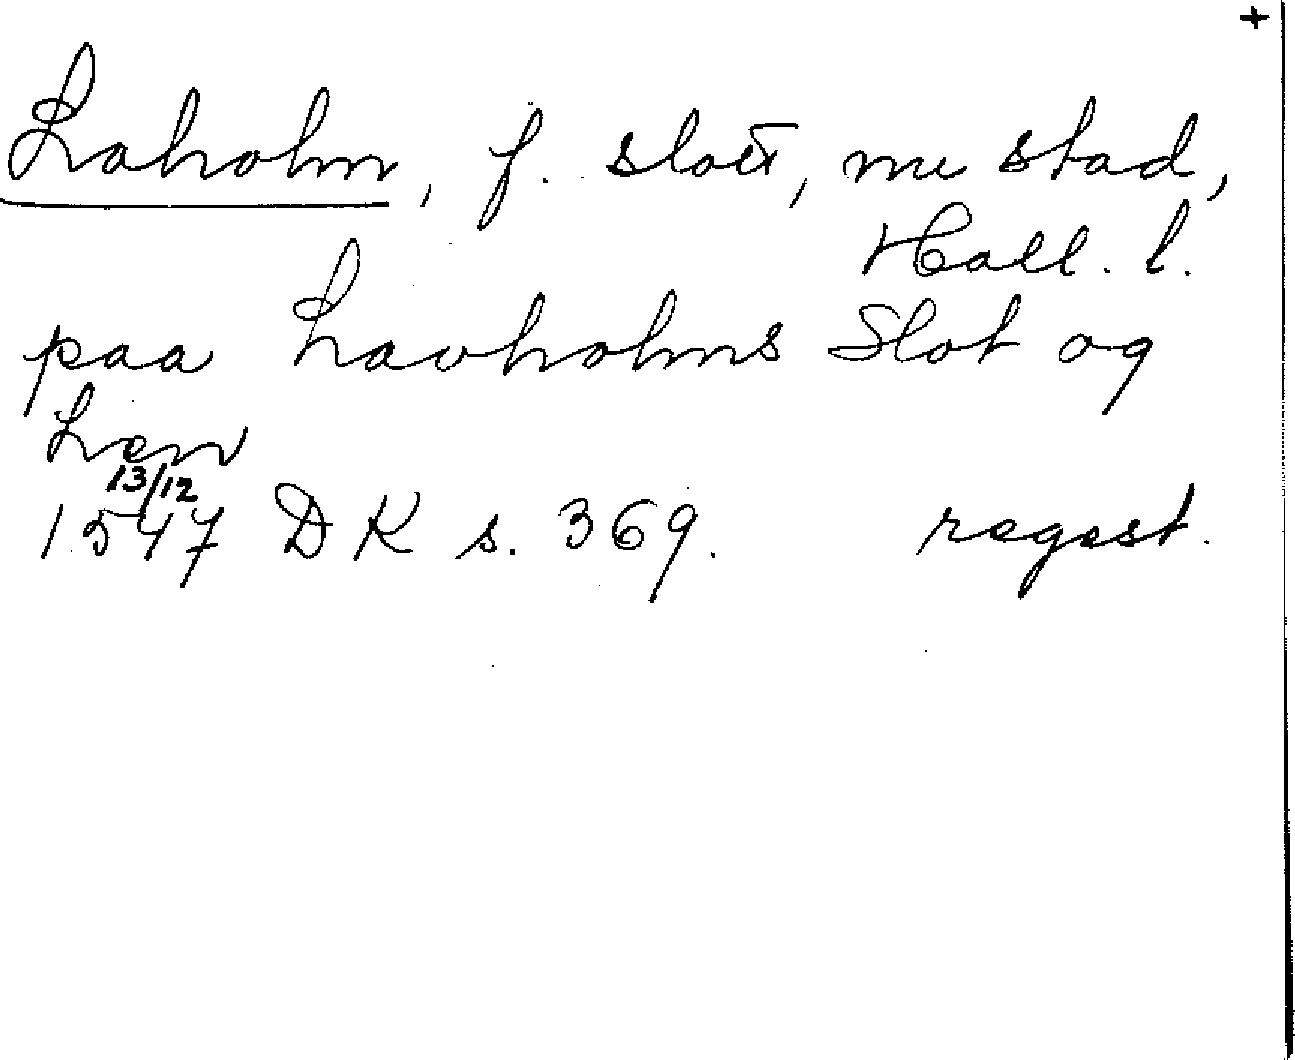 +
Laholm, f. slott, nu stad,
Hall. l.
paa Lavholms Slot og
Len
13/12
1547 DK s. 369. regest.